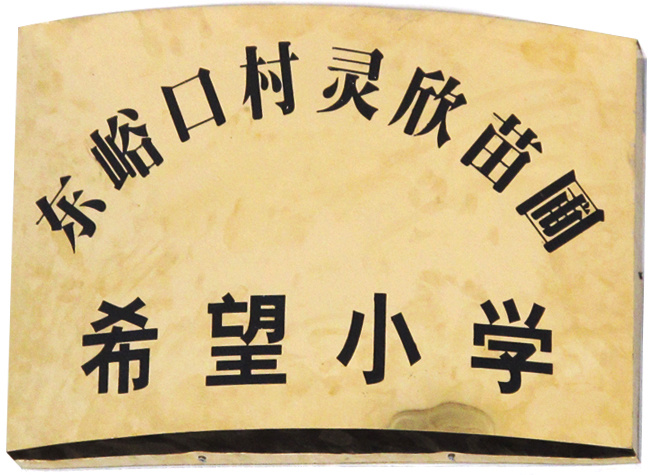 东峪口村灵欣苗圃
希望小学